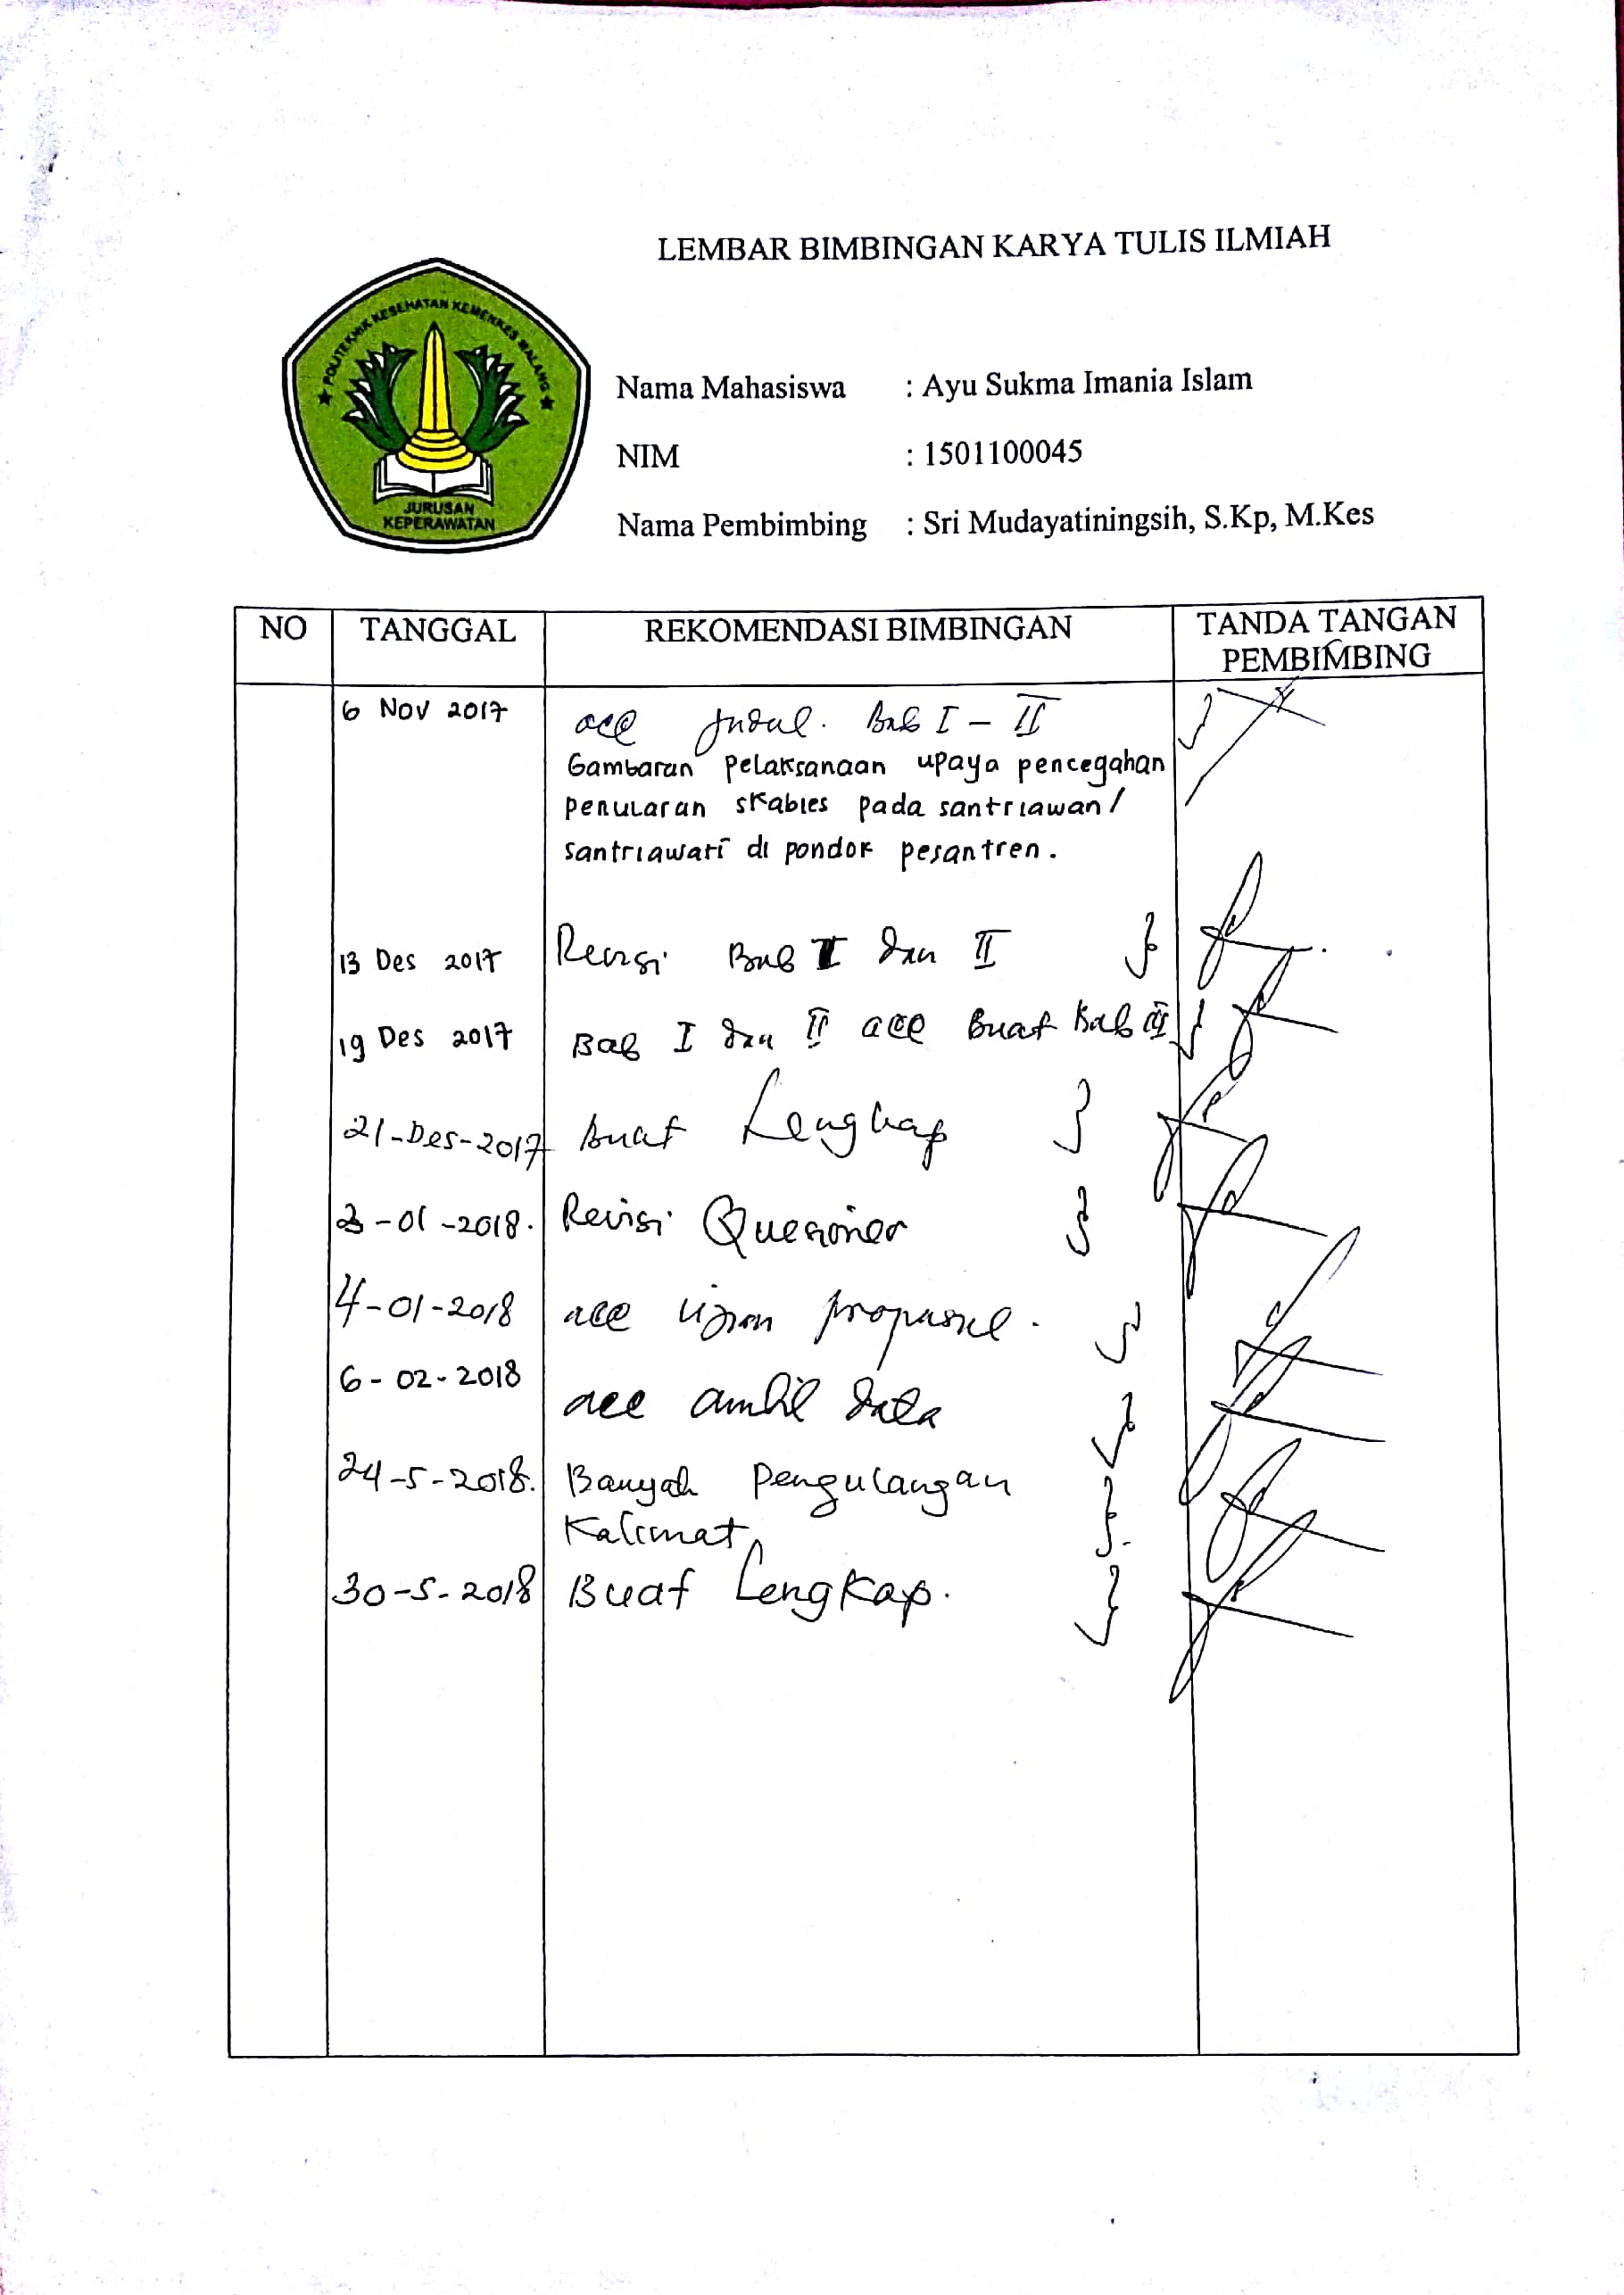 LEMBAR BIMBINGAN KARYA TULIS ILMIAH
POLITEKNIK KESEHATAN KEMENKES MALANG
JURUSAN
KEPERAWATAN
Nama Mahasiswa : Ayu Sukma Imania Islam
NIM : 1501100045
Nama Pembimbing : Sri Mudayatiningsih, S.Kp, M.Kes
NO TANGGAL REKOMENDASI BIMBINGAN TANDA TANGAN PEMBIMBING
6 Nov 2017 acc Judul. Bab I - II
Gambaran pelaksanaan upaya pencegahan
penularan skabies pada santriawan/
santriawati di pondok pesantren.
13 Des 2017 Revisi Bab I dan II
19 Des 2017 Bab I dan II acc Buat Bab III
21-Des-2017 Buat Lengkap
3-01-2018. Revisi Quesioner
4-01-2018 acc ujian proposal.
6-02-2018 acc ambil data
24-5-2018. Banyak Pengulangan
Kalimat
30-5-2018 Buat Lengkap.